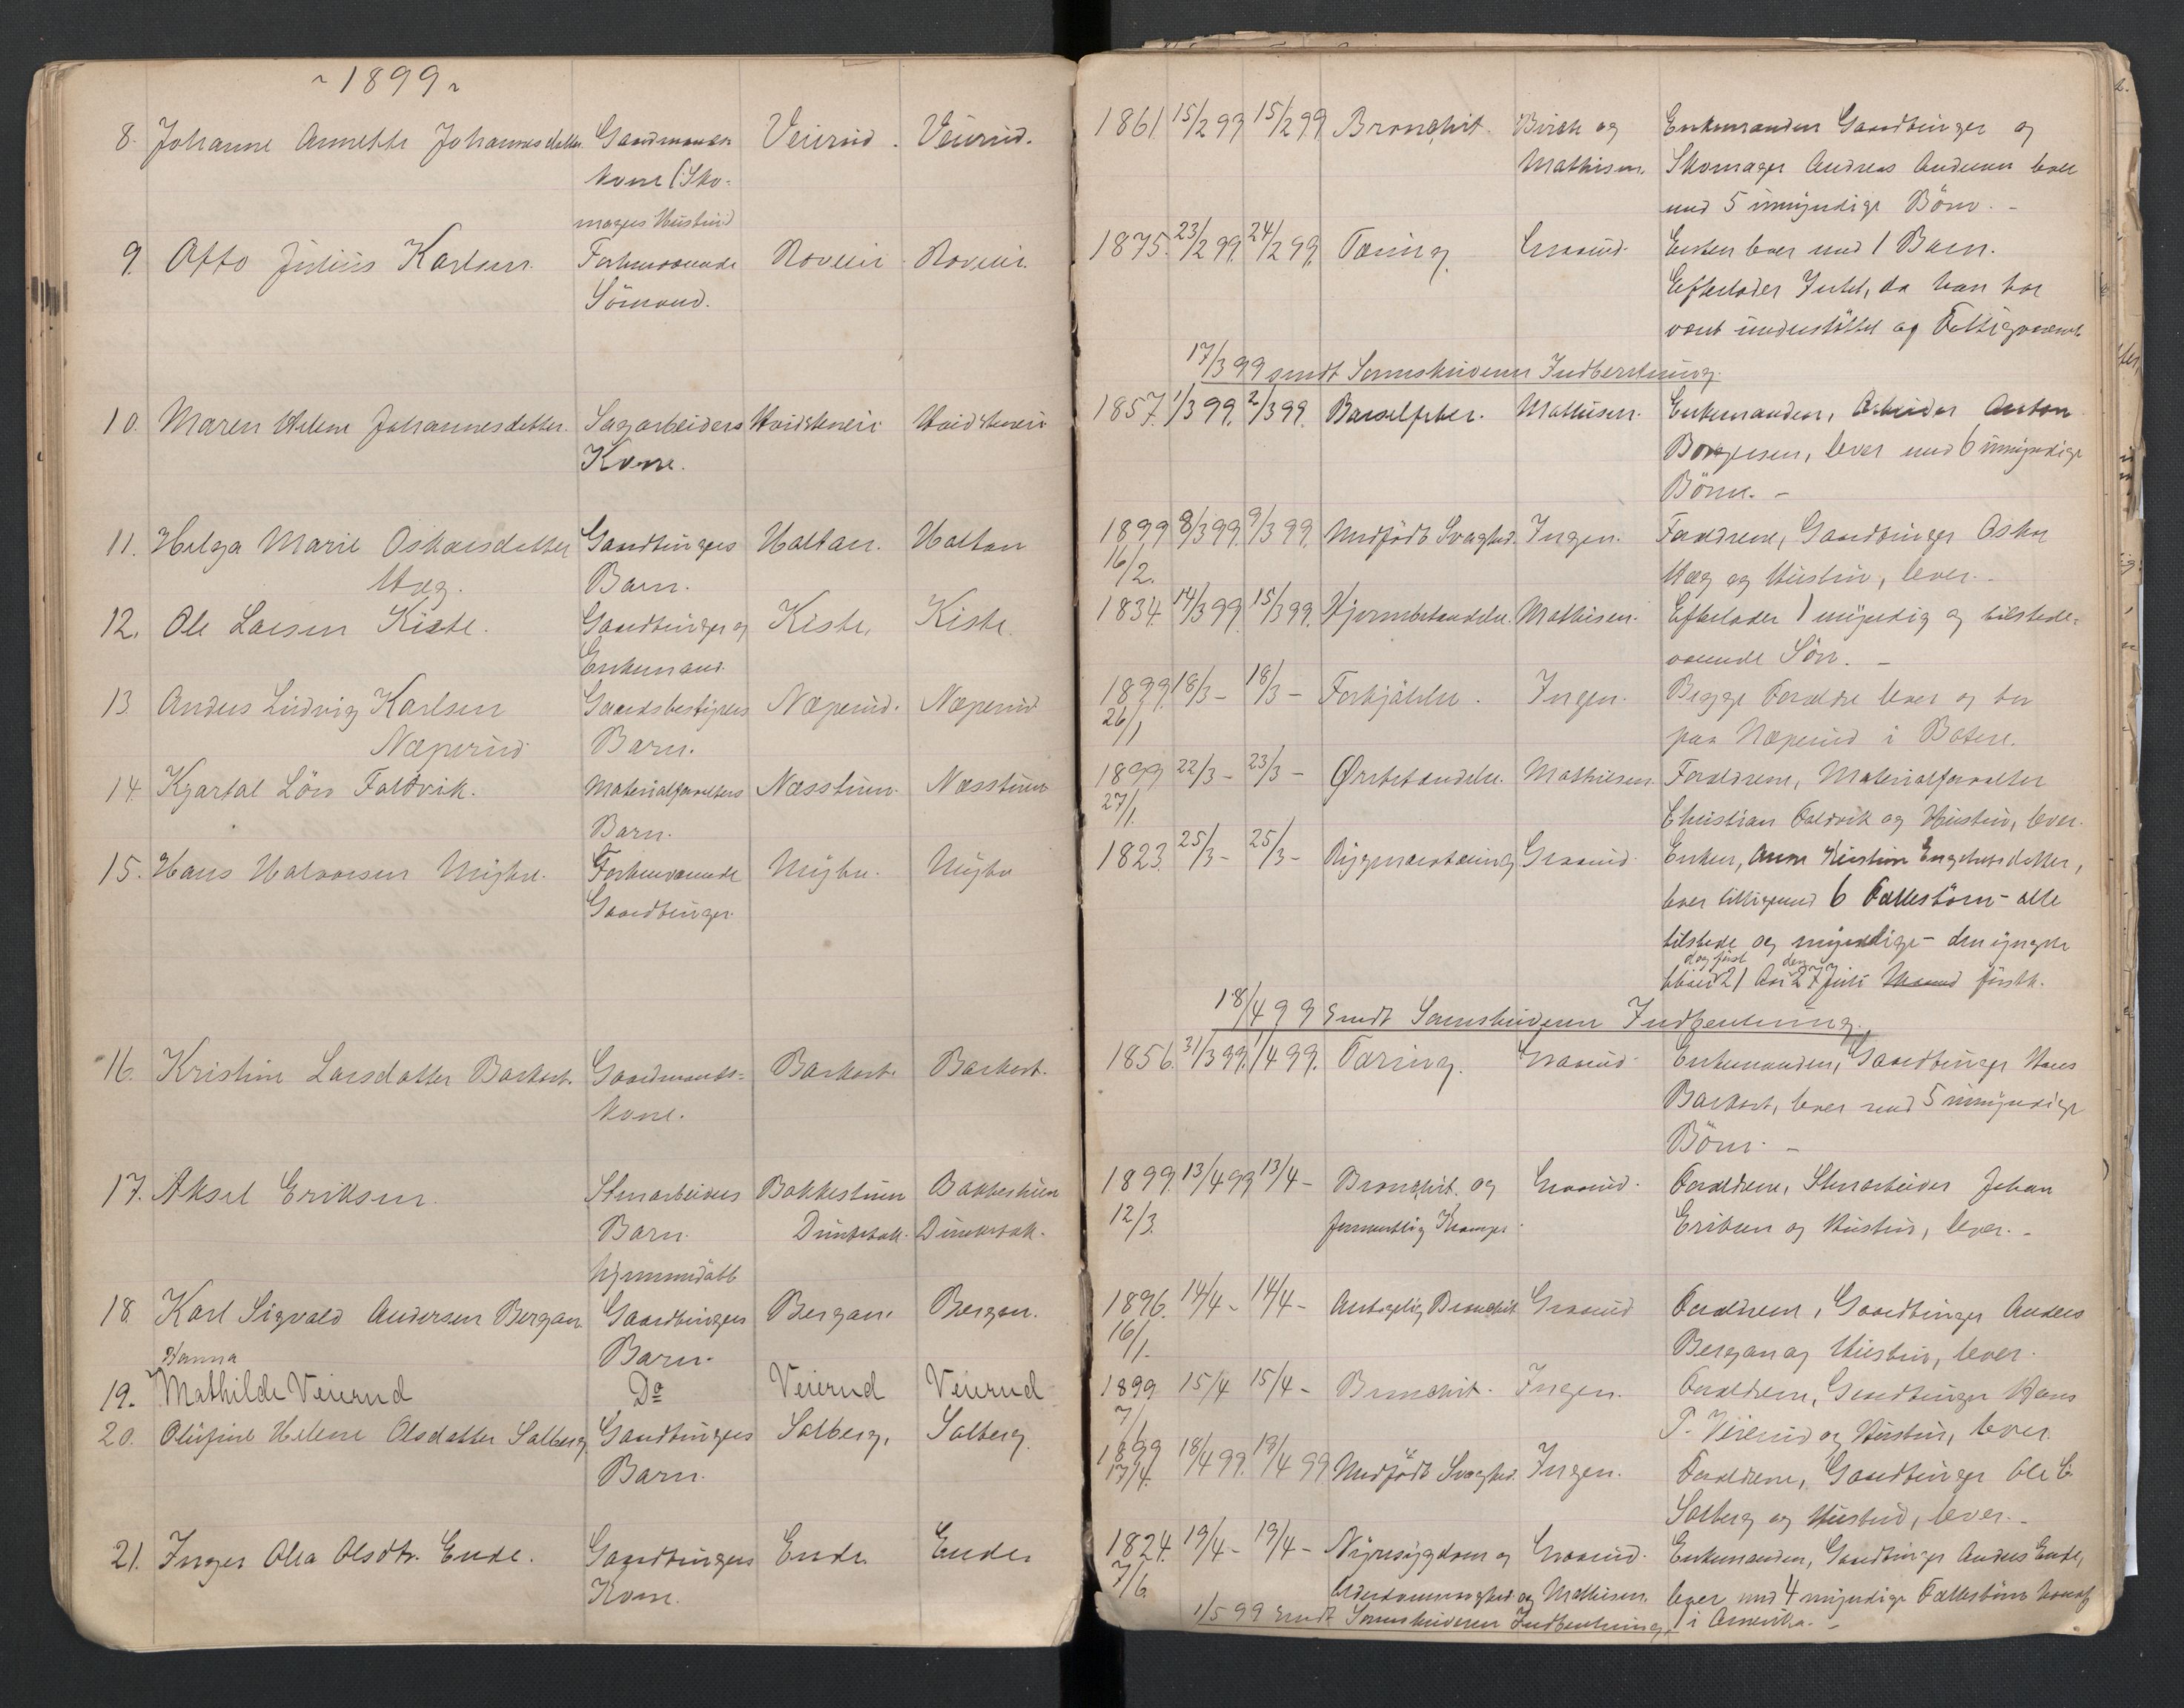 ~ 1899 ~
8. Johanne Annette Johannesdatter Gaardmands Veierud. Veierud.
kone (Sko-
magers Hustru)
9. Otto Julius Karlsen. Forhenværende Roveir Roveir.
Sömand.
10. Maren Helene Johannesdatter. Sagarbeiders Hvidsteneie Hvidsteneie
Kone.
11. Helga Marie Oskarsdatter Gaardbrugers Haltan. Haltan
Høg. Barn.
12. Ole Larsen Kiste. Gaardbruger og Kiste. Kiste.
Enkemand.
13. Anders Ludvig Karlsen Gaardsbestyrers Næperud. Næperud
Næperud Barn.
14. Kjartal Löv Faldvik. Materialforvalters Næsstuen. Næsstuen
Barn.
15. Hans Halvorsen Nigbu. Forhenværende Nigbu. Nigbu
Gaardbruger.
16. Kristine Larsdatter Barkost. Gaardmands- Barkost. Barkost.
kone.
17. Aksel Eriksen. Stenarbeiders Bakkestuen Bakkestuen
Barn. Dunkebak. Dunkebak.
hjemmedöbt
18. Karl Sigvald Andersen Bergan. Gaardbrugers Bergan. Bergan.
Barn.
Hanna
19. Mathilde Veierud Do Veierud Veierud
20. Olufine Helene Olsdatter Solberg Gaardbrugers Solberg, Solberg.
Barn.
21. Inger Olea Olsdtr. Ende. Gaardbrugers Ende. Ende.
Kone.
1861 15/2 99 15/2 99. Bronchit. Birch og Enkemanden Gaardbruger og
Mathisen. Skomager Andreas Andersen lever
med 5 umyndige Börn. -
1875. 23/2 99. 24/2 99. Tæring. Graarud. Enken lever med 1 Barn.
Efterlader Intet, da han har
været understöttet af Fattigvæsenet
17/3 99 sendt Sorenskriveren Indberetning.
1857. 1/3 99. 2/3 99. Barselfeber. Mathisen. Enkemanden, Arbeider Anton
Borgersen, lever med 6 umyndige
Börn. -
1899 8/3 99. 9/3 99. Medfödt Svaghed. Ingen. Forældrene, Gaardbruger Oskar
16/2. Høg og Hustru, lever. -
1834. 14/3 99. 15/3 99. Hjernebetændelse. Mathisen. Efterlader 1 myndig og tilstede-
værende Sön. -
1899. 18/3 - 18/3 - Forkjölelse. Ingen. Begge Forældre lever og bor
26/1 paa Næperud i Botne.
1899 22/3 - 23/3 - Ørebetændelse. Mathisen. Forældrene, Materialforvalter
27/1. Christian Faldvik og Hustru, lever.
1823. 25/3 - 25/3 - Rygmarvstæring Graarud. Enken, Anne Kirstine Engebretsdatter,
lever tilligemed 6 Fællesbörn - alle
tilstede og myndige - den yngste
dog först den
bliver 21 Aar 27 Juli förstk.
18/4 99 Sendt Sorenskriveren Indberetning.
1856. 31/3 99. 1/4 99. Tæring. Graarud. Enkemanden, Gaardbruger Hans
Barkost, lever med 5 umyndige
Börn. -
1899. 13/4 99 13/4 - Bronchit. og Graarud. Forældrene, Stenarbeider Johan
12/3. formentlig Kramper. Eriksen og Hustru, lever. -
1896. 14/4 - 14/4 - Antagelig Bronchit Graarud Forældrene, Gaardbruger Anders
16/1. Bergan og Hustru, lever.
1899 15/4 15/4 - Bronchit. Ingen. Forældrene, Gaardbruger Hans
7/1 P. Veierud og Hustru, lever.
1899 18/4 99. 18/4 99 Medfödt Svaghed. Ingen. Forældrene, Gaardbruger Ole C.
17/4. Solberg og Hustru, lever. -
1824. 19/4 - 19/4 - Nyresygdom og Graarud. Enkemanden, Gaardbruger Anders Ende,
7/6. Alderdomssvaghed og Mathisen. lever med 4 myndige Fællesbörn hvoraf
1/5 99 Sendt Sorenskriveren Indberetning. 1 i Amerika. -